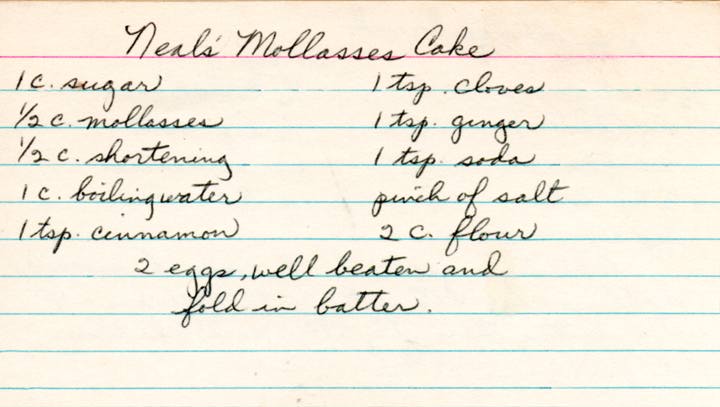 Neal's Mollasses Cake
1 c. sugar
1/2 c. mollasses
1/2 c. shortening
1 c. boiling water
1 tsp. cinnamon
1 tsp. cloves
1 tsp. ginger
1 tsp. soda
pinch of salt
2 c. flour
2 eggs, well beaten and
fold in batter.